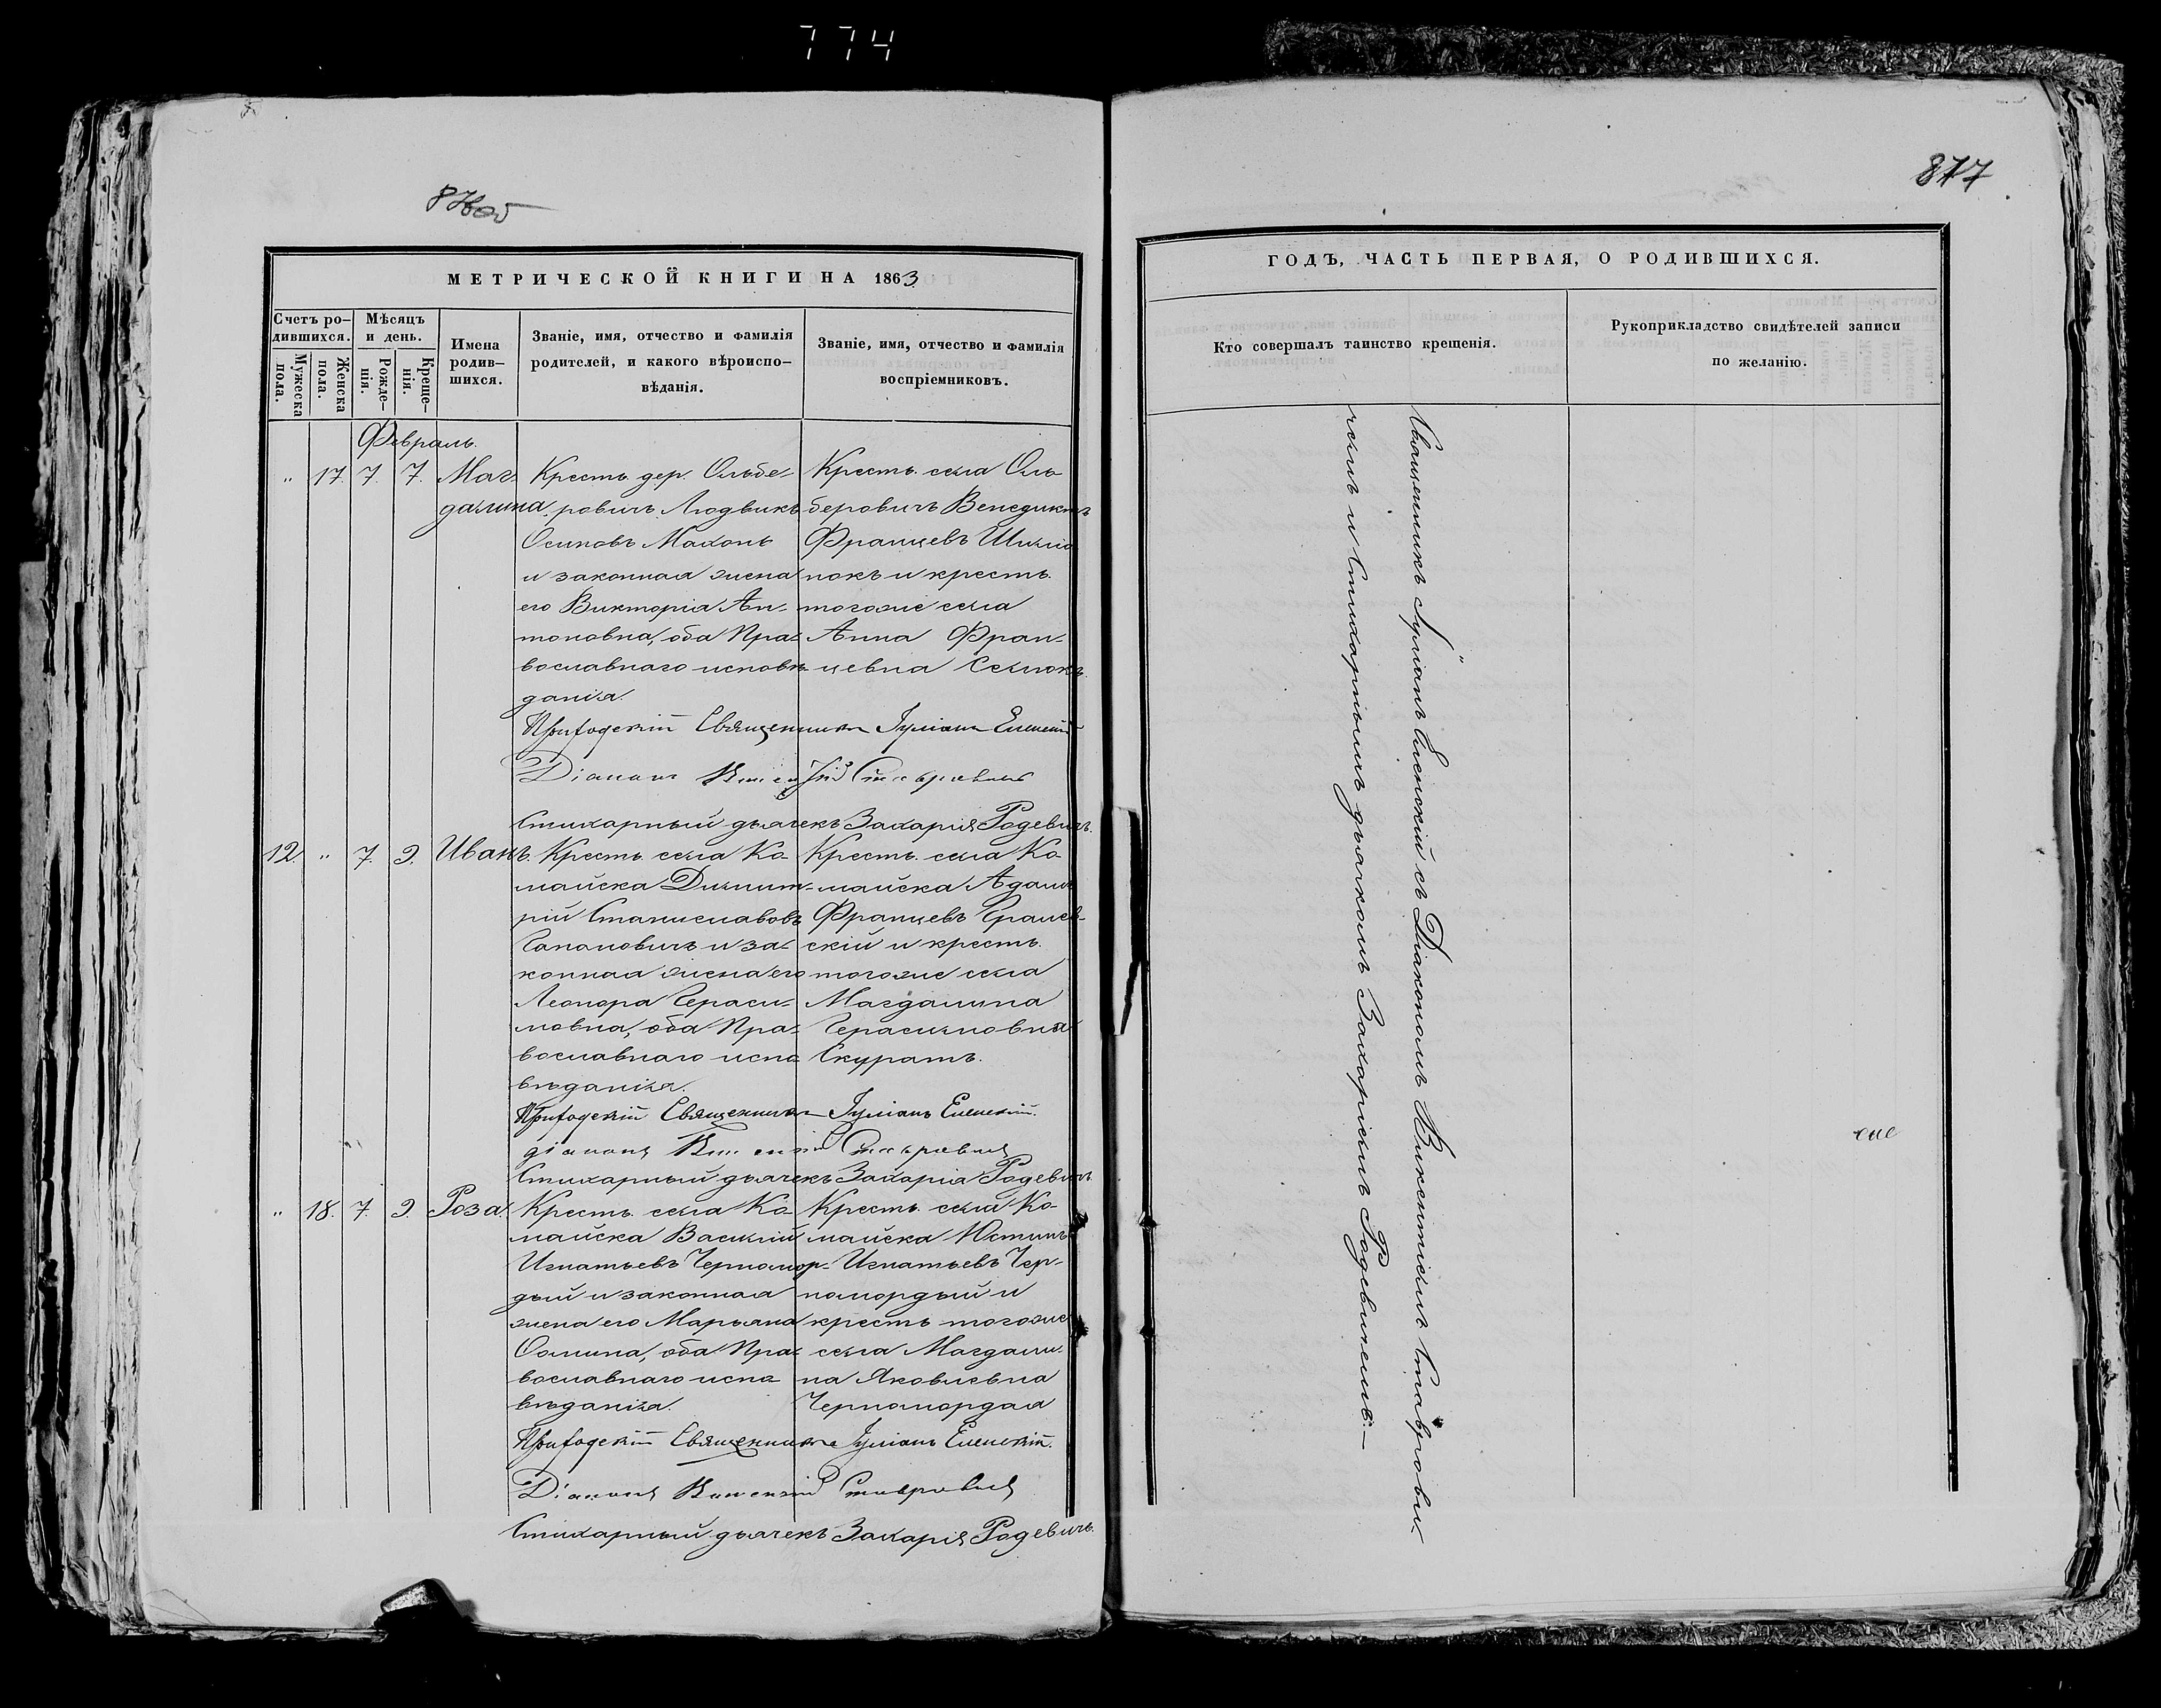 774
877
МЕТРИЧЕСКОЙ КНИГИ НА 1863
Счетъ ро-
дившихся.
Мѣсяцъ
и день.
Мужеска
пола.
Женска
пола.
Рожде-
нія.
Креще-
нія.
Имена
родив-
шихся.
Званіе, имя, отчество и фамилія
родителей, и какого вѣроиспо-
вѣданія.
Званіе, имя, отчество и фамилія
воспріемниковъ.
Февраль.
" 17. 7. 7.
Маг-
далина.
Крестъ. дер. Ольбе-
ровичъ Людвикъ
Осиповъ Махонь
и законная жена
его Викторія Ан-
тоновна, оба Пра-
вославнаго исповѣ-
данія.
Крестъ. села Оль-
беровичъ Венедиктъ
Францевъ
и крестъ.
тогоже села
Анна Фран-
цевна
Приходскій Священникъ Іуліанъ Еленскій
Діаконъ Викентій Ставровичъ
Стихарный дьячекъ Захарія Родевичъ.
12. " 7. 9.
Иванъ.
Крестъ. села Ко-
майска Димит-
рій Станиславовъ
Гапановичъ и за-
конная жена его
Леонора Гераси-
мовна, оба Пра-
вославнаго испо-
вѣданія.
Крестъ. села Ко-
майска Адамъ
Францевъ
скій и крестъ.
тогоже села
Магдалина
Герасимовна
Скуратъ.
Приходскій Священникъ Іуліанъ Еленскій.
діаконъ Викентій Ставровичъ
Стихарный дьячекъ Захарія Родевичъ.
" 18. 7. 9.
Роза.
Крестъ. села Ко-
майска Василій
Игнатьевъ Черномор-
дый и законная
жена его Марьяна
Фомина, оба Пра-
вославнаго испо-
вѣданія.
Крестъ. села Ко-
майска Юстинъ
Игнатьевъ Чер-
номордый и
крестъ. тогоже
села Магдали-
на Яковлевна
Черномордая
Приходскій Священникъ Іуліанъ Еленскій.
Діаконъ Викентій Ставровичъ
Стихарный дьячекъ Захарія Родевичъ.
ГОДЪ, ЧАСТЬ ПЕРВАЯ, О РОДИВШИХСЯ.
Кто совершалъ таинство крещенія.
Рукоприкладство свидѣтелей записи
по желанію.
Священникъ Іуліанъ Еленскій съ Діакономъ Викентіемъ Ставрови-
чемъ и Стихарнымъ дьячкомъ Захаріемъ Родевичемъ.—